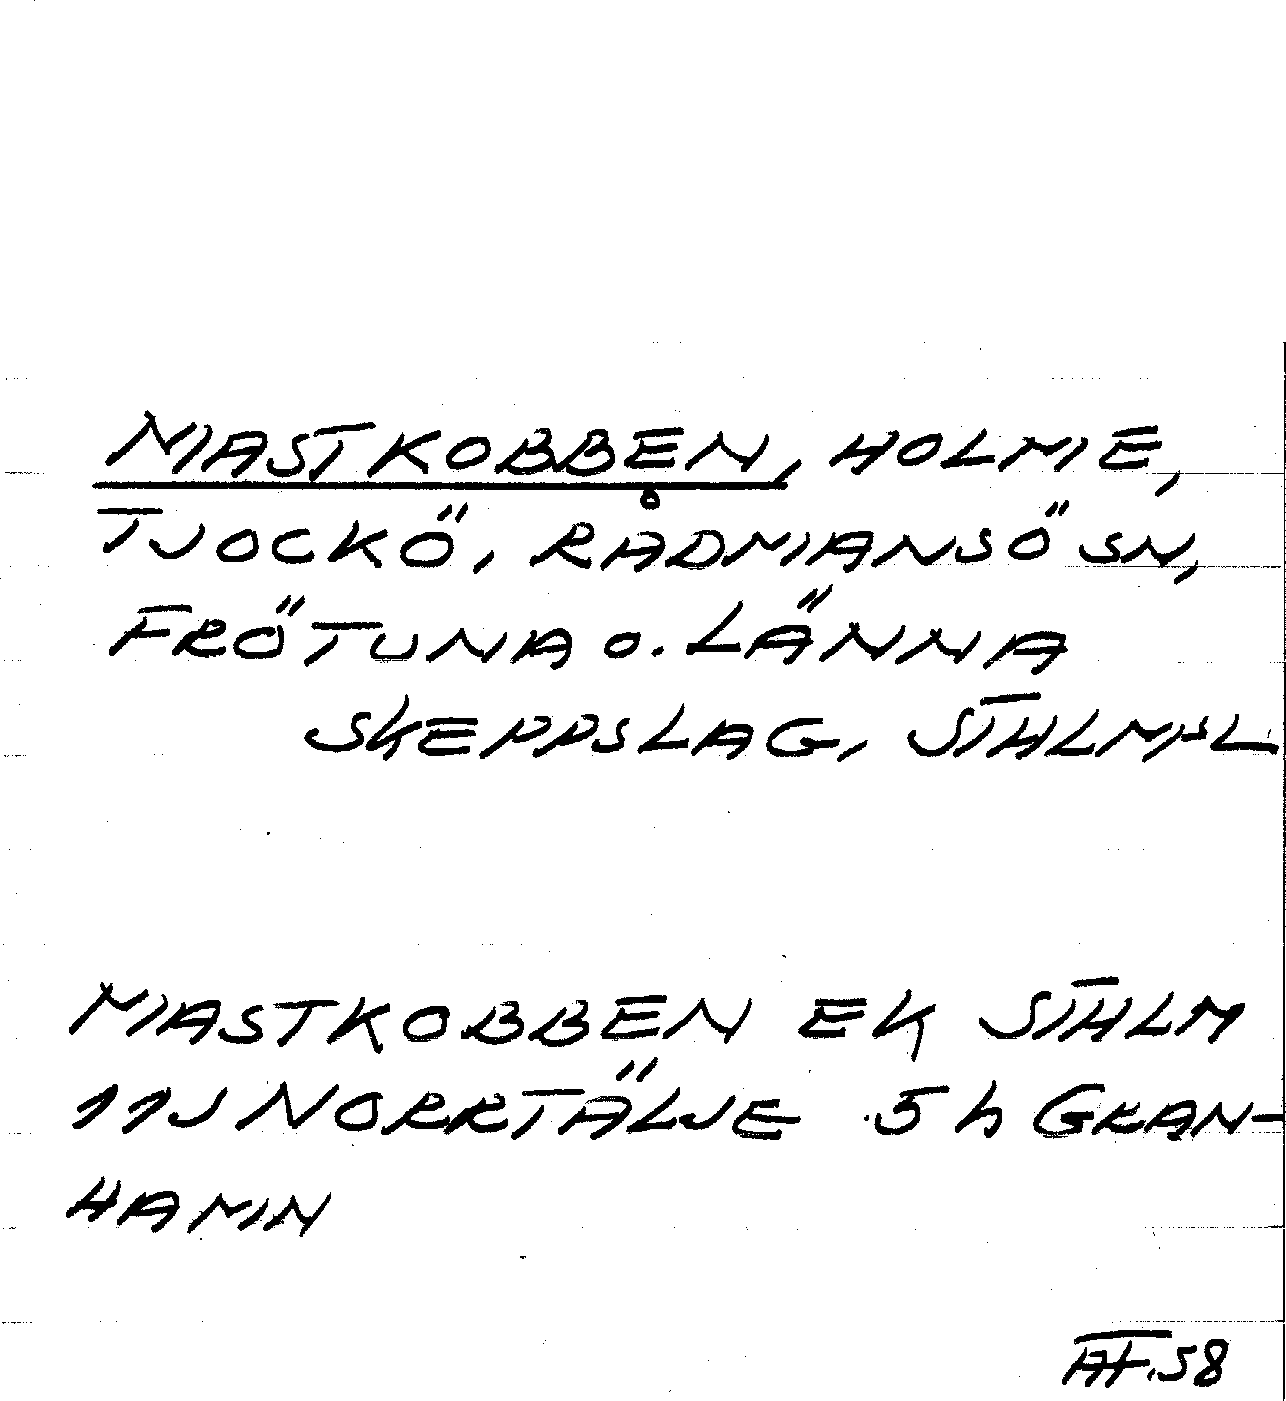 MASTKOBBEN, HOLME,
TJOCKÖ, RÅDMANSÖ SN,
FRÖTUNA O. LÄNNA
SKEPPSLAG, STHLMSL
MASTKOBBEN EK STHLM
11J NORRTÄLJE 5h GRAN-
HAMN
AF.58